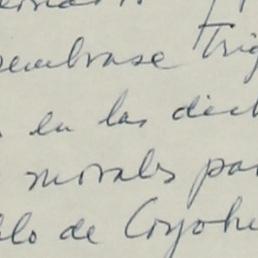 sembrase Trig
en las dich
morales par
lo de Coyohu